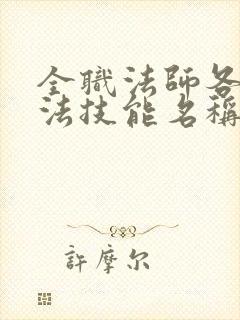 全職法師各
法技能名稱
許摩尔